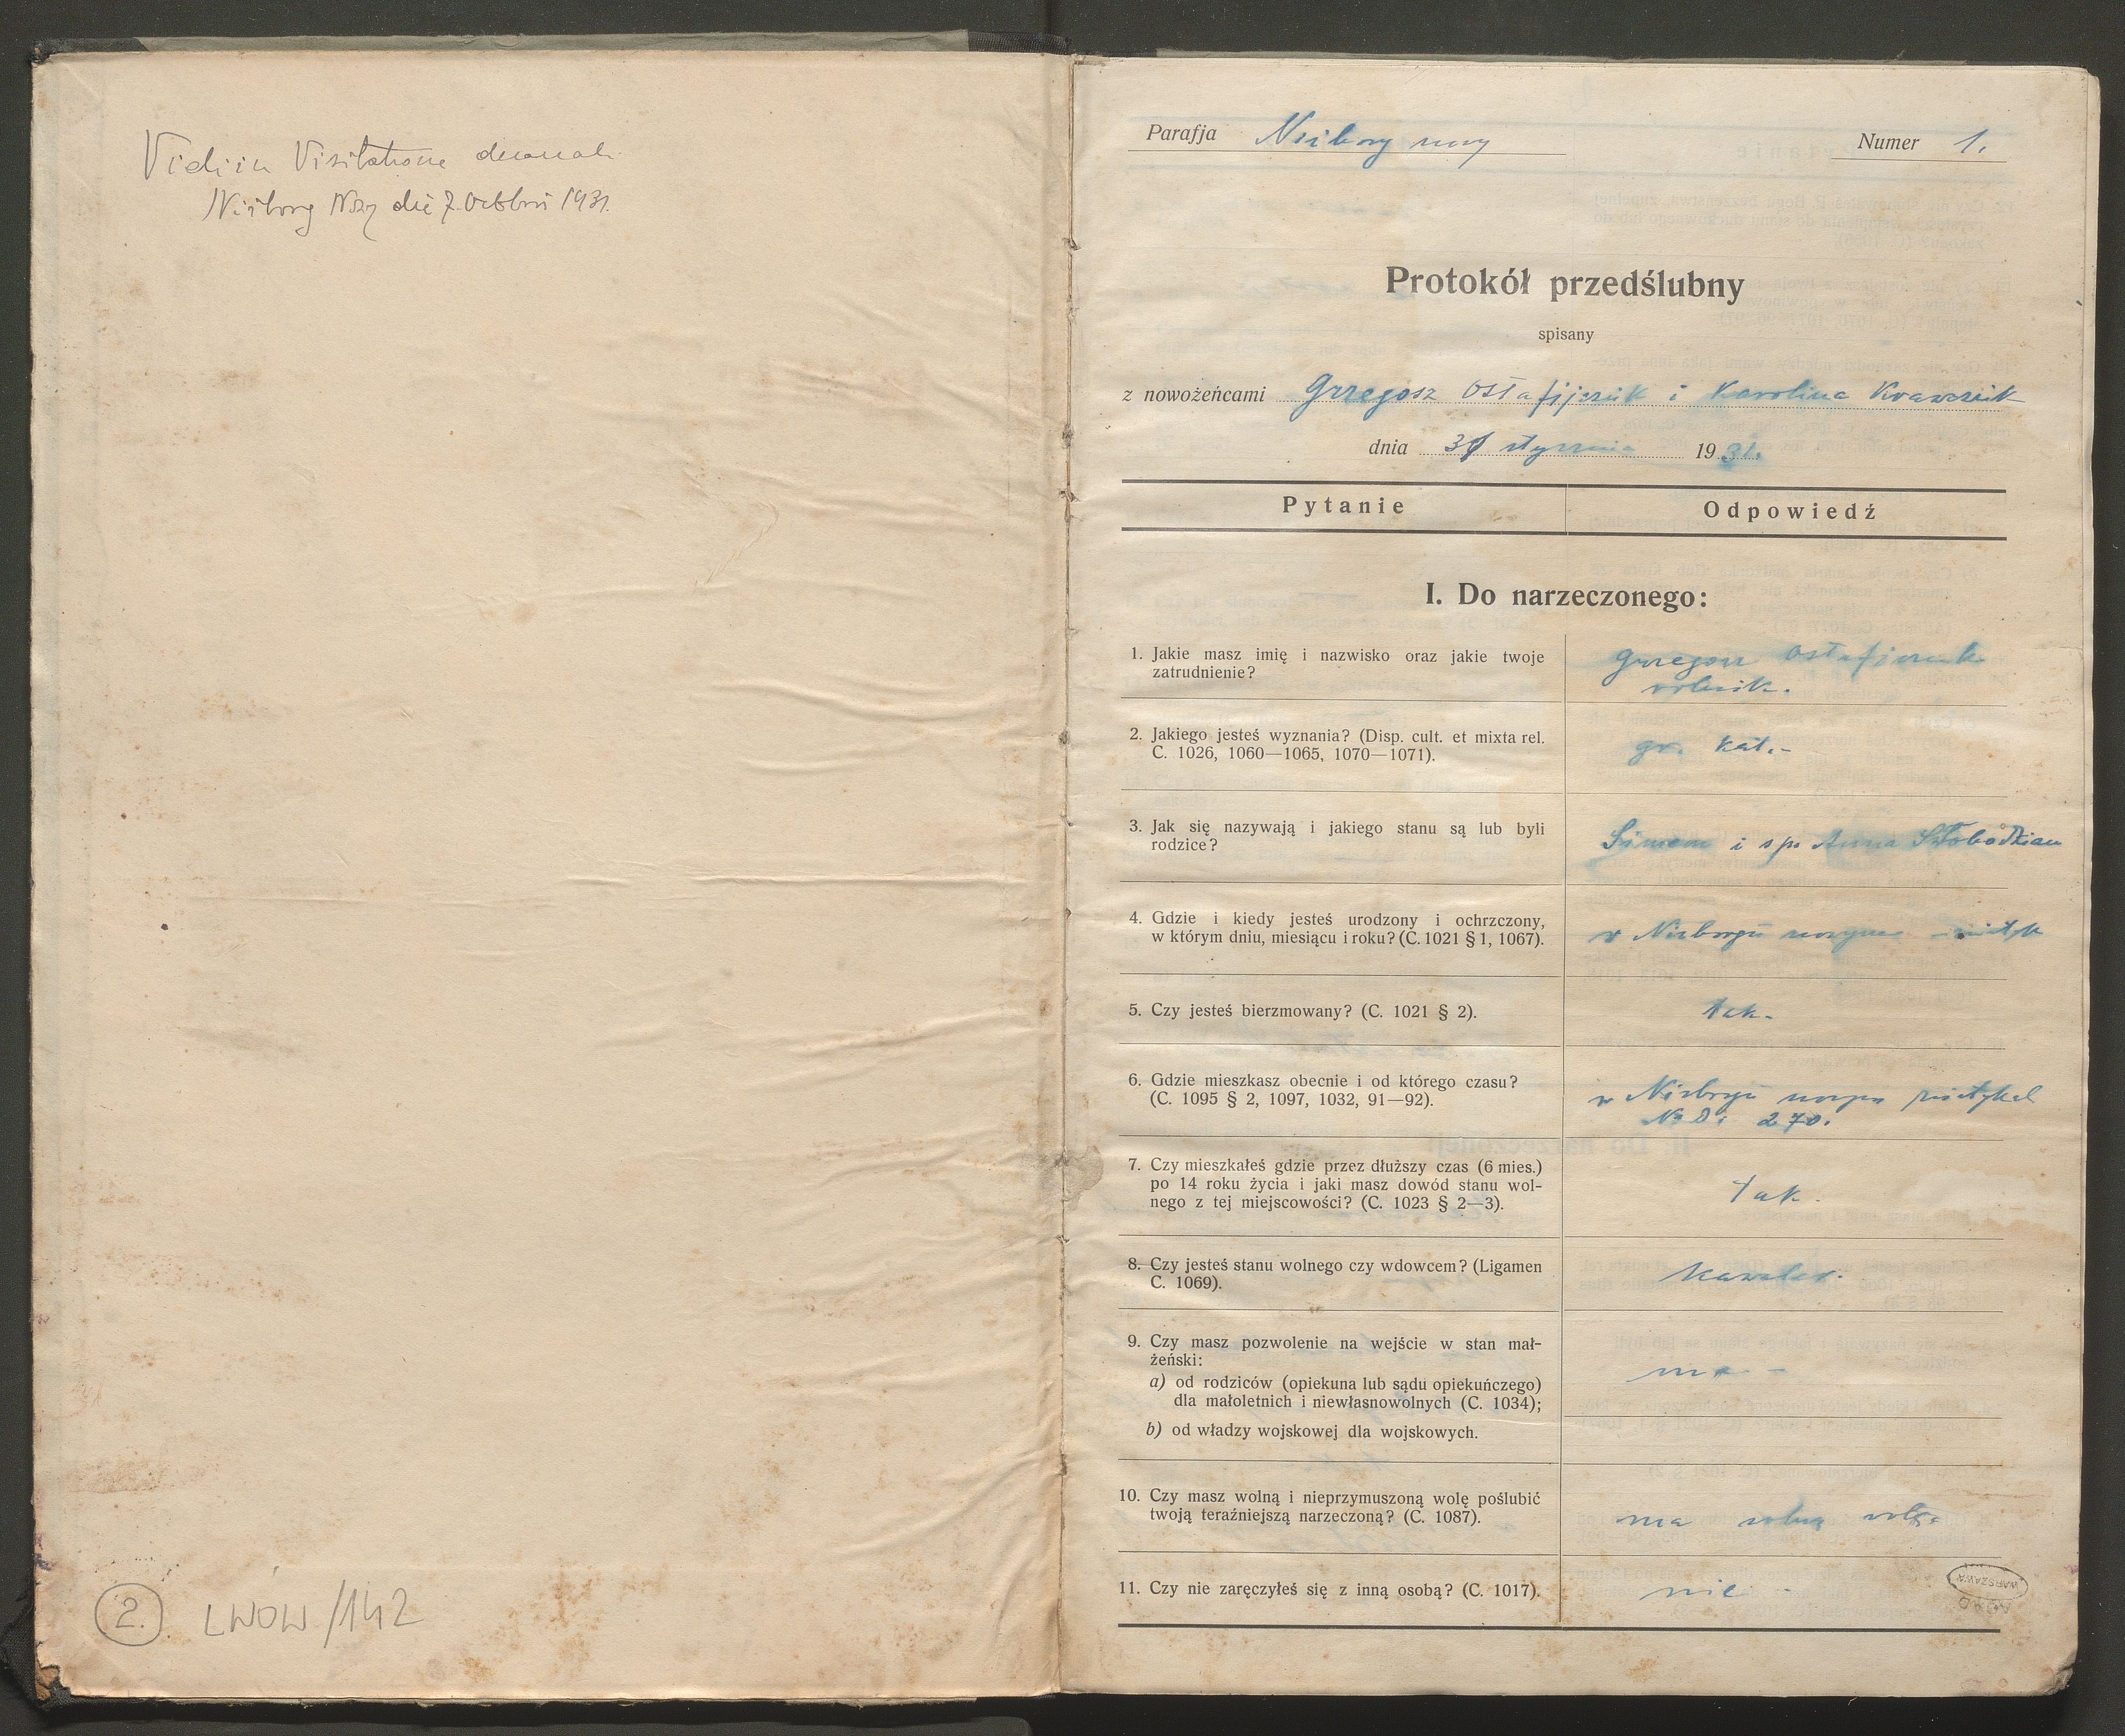 Vidi in Visitatione decanali
Niżborg Nowy die 7. Octobris 1931.
2. LWÓW/142
Parafja Niżborg nowy Numer 1.
Protokół przedślubny
spisany
z nowożeńcami Grzegosz Ostafijczuk i Karolina Krawczuk
dnia stycznia 1931.
Pytanie Odpowiedź
I. Do narzeczonego:
1. Jakie masz imię i nazwisko oraz jakie twoje
zatrudnienie?
Grzegorz Ostafijczuk
rolnik.
2. Jakiego jesteś wyznania? (Disp. cult. et mixta rel.
C. 1026, 1060—1065, 1070—1071).
gr. kat.-
3. Jak się nazywają i jakiego stanu są lub byli
rodzice?
Simeon i śp. Anna Słobodzian
4. Gdzie i kiedy jesteś urodzony i ochrzczony,
w którym dniu, miesiącu i roku? (C. 1021 § 1, 1067).
w Niżborgu nowym
5. Czy jesteś bierzmowany? (C. 1021 § 2).
tak.
6. Gdzie mieszkasz obecnie i od którego czasu?
(C. 1095 § 2, 1097, 1032, 91—92).
w Niżborgu nowym
No D. 270.
7. Czy mieszkałeś gdzie przez dłuższy czas (6 mies.)
po 14 roku życia i jaki masz dowód stanu wol-
nego z tej miejscowości? (C. 1023 § 2—3).
tak.
8. Czy jesteś stanu wolnego czy wdowcem? (Ligamen
C. 1069).
kawaler.
9. Czy masz pozwolenie na wejście w stan mał-
żeński:
a) od rodziców (opiekuna lub sądu opiekuńczego)
dla małoletnich i niewłasnowolnych (C. 1034);
b) od władzy wojskowej dla wojskowych.
ma -
10. Czy masz wolną i nieprzymuszoną wolę poślubić
twoją teraźniejszą narzeczoną? (C. 1087).
ma wolną wolę.
11. Czy nie zaręczyłeś się z inną osobą? (C. 1017).
nie -
WARSZAWA